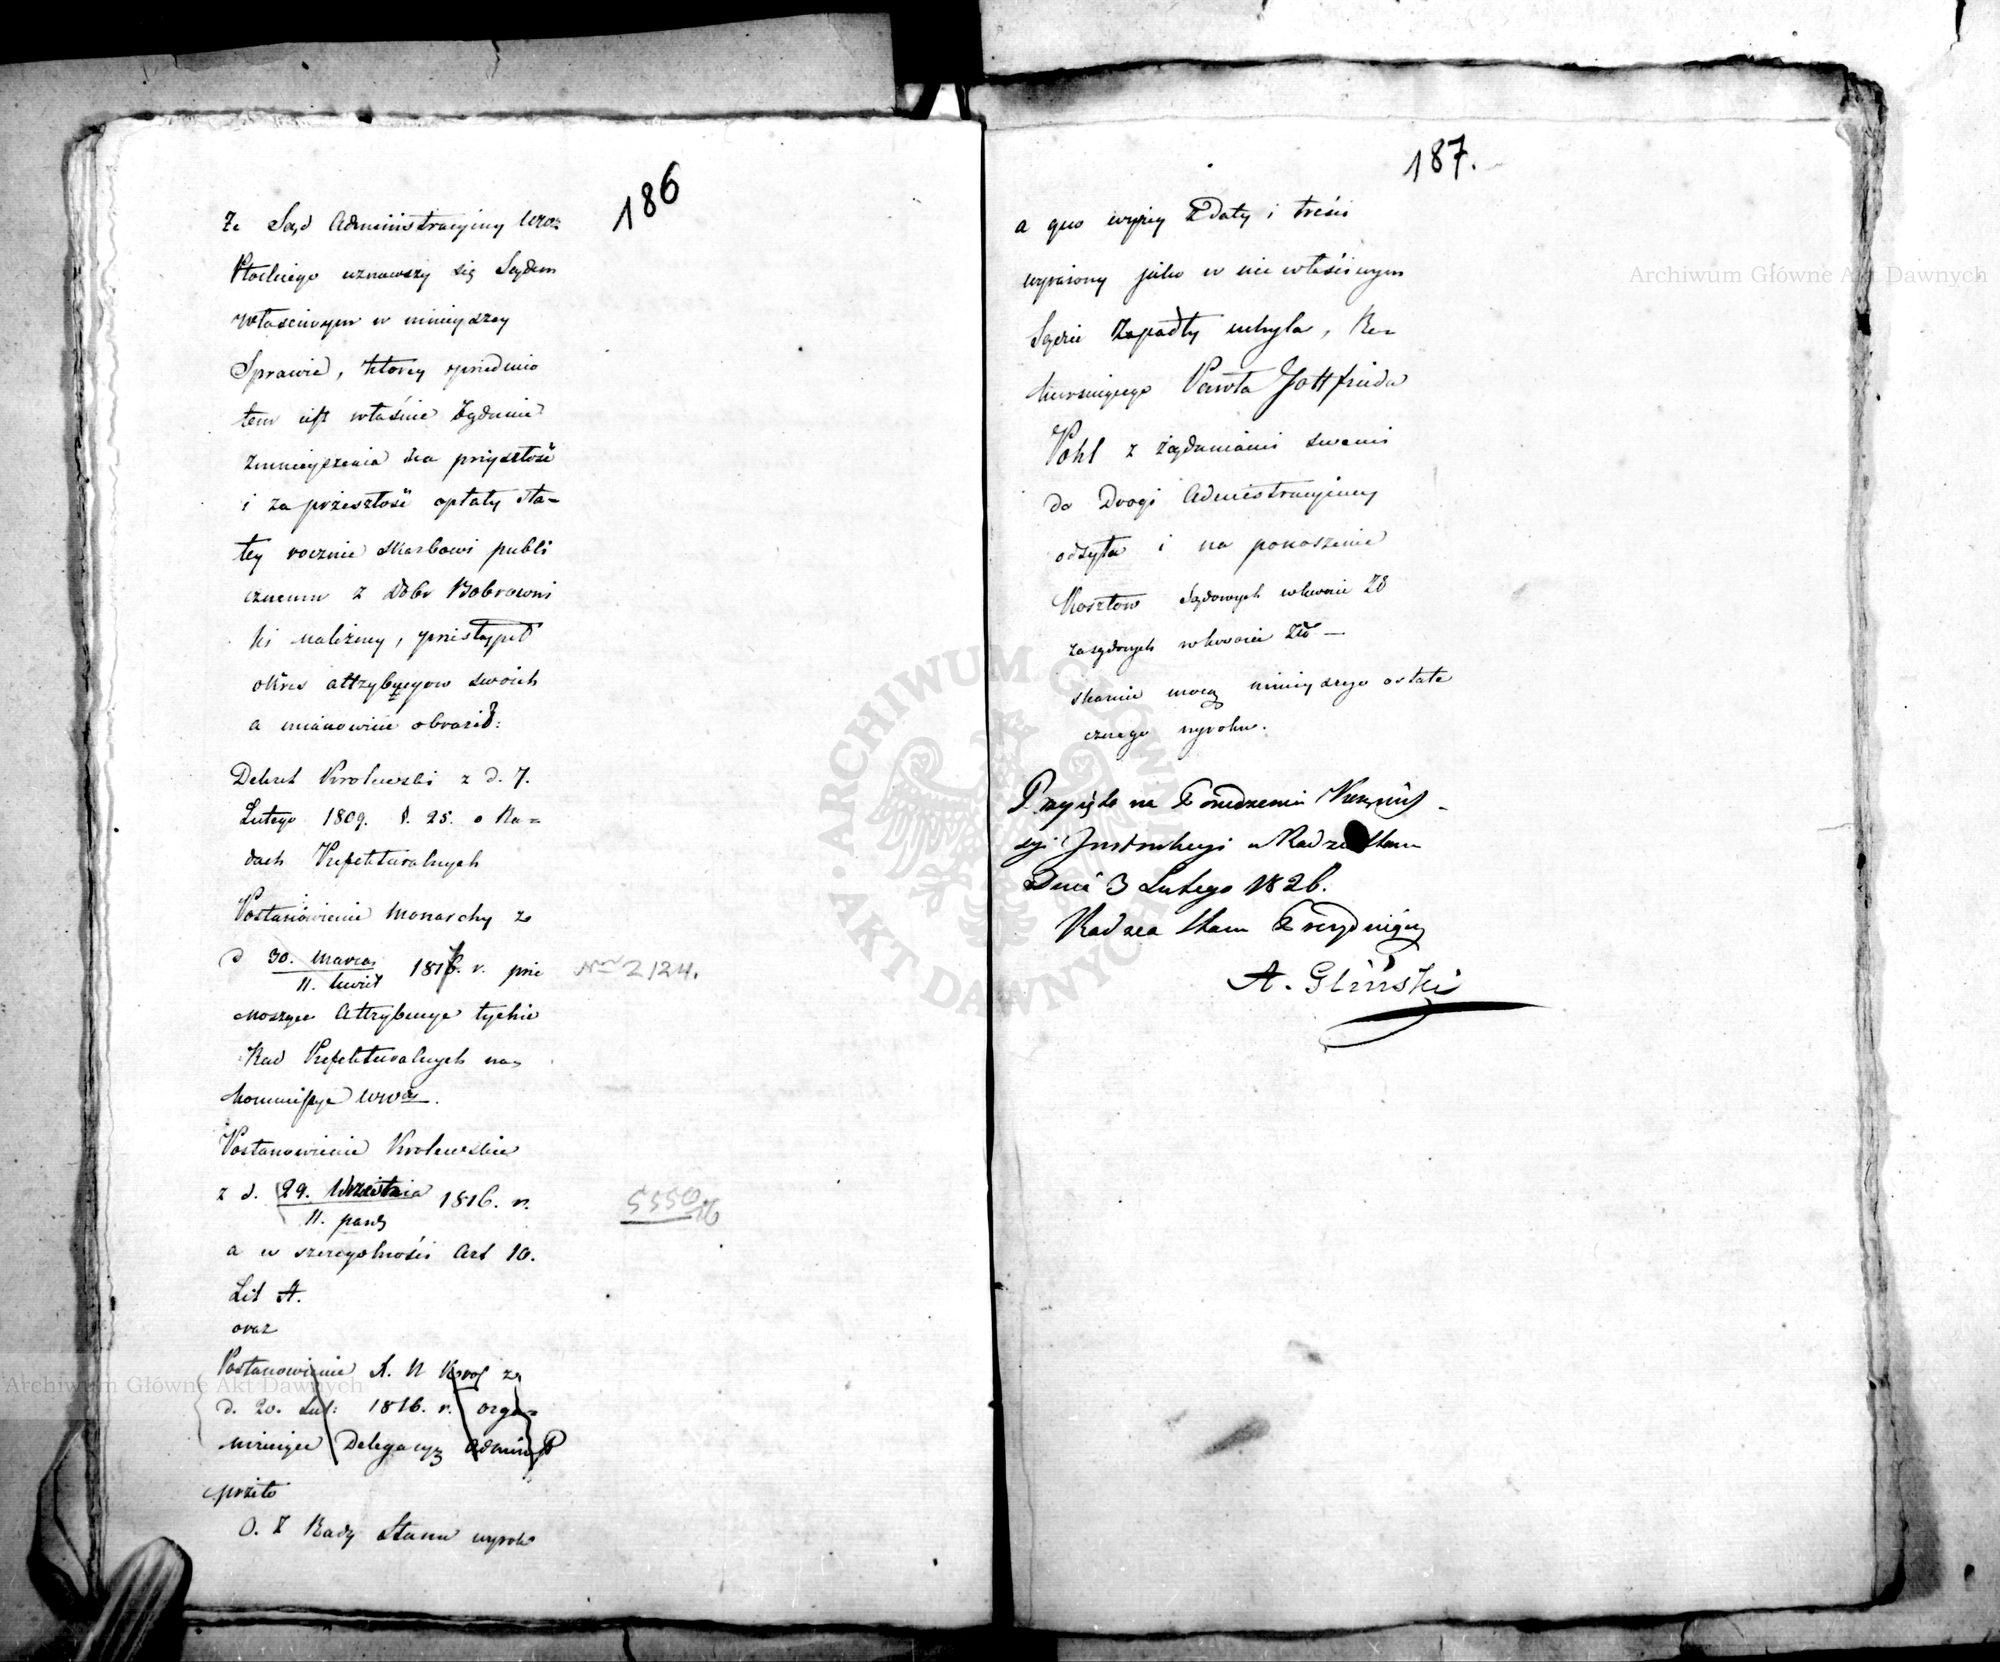 186
Że Sąd Administracyiny Wdz
Płockiego uznawszy się Sądem
właściwym w ninieyszey
Sprawie, ktorey przedmio
tem iest właśnie żądanie
zmnieyszenia na przyszłość
i za przeszłość opłaty sta=
łey rocznie Skarbowi publi
cznemu z Dobr Bobrowni
ki należney, przestąpił
okres attrybucyow swoich
a mianowicie obraził:
Dekret Krolewski z d. 7.
Lutego 1809. §. 25. o Ra=
dach Prefekturalnych
Postanowienie Monarchy z
d 30. Marca 1816. r. prze
11. kwiet
noszące Attrybucye tychże
Rad Prefekturalnych na
Kommissye Wwdz.
Postanowienie Krolewskie
z d. 29. Września 1816. r.
11. paźdz
a w szczegolności Art 10.
Lit A.
oraz
Postanowienie X. N Krol z
d. 20. Lut: 1816. r. orga=
nizuiące Delegacyą Admin
przeto
O. Z Rady Stanu wyrok
Nro 2124.
5550/16
187.
a quo wyżey z Daty i treści
wyrażony jako w nie właściwym
Sądzie zapadły uchyla, Re=
kurruiącego Pawła Gottfrieda
Pohl z żądaniami swemi
do Drogi Administracyiney
odsyła i na ponoszenie
Kosztow Sądowych w kwocie Zł
zasądzonych w kwocie Zł —
skazuie mocą ninieyszego ostate
cznego wyroku.
Przyięto na Posiedzeniu Kommis=
syi Instrukcyi w Radzie Stanu
Dnia 3 Lutego 1826.
Radzca Stanu Prezyduiący
A. Gliński
Archiwum Główne Akt Dawnych
Archiwum Główne Akt Dawnych
ARCHIWUM GŁÓWNE • AKT DAWNYCH •